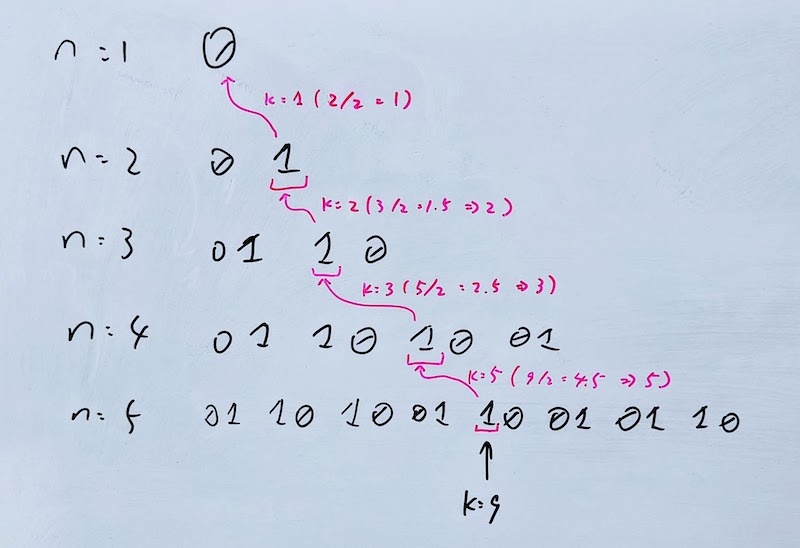 n=1 0
k=1 (2/2 = 1)
n=2 0 1
k=2 (3/2=1.5 => 2)
n=3 01 10
k=3 (5/2 = 2.5 => 3)
n=4 01 10 10 01
k=5 (9/2=4.5 => 5)
n=5 01 10 10 01 10 01 01 10
k=9